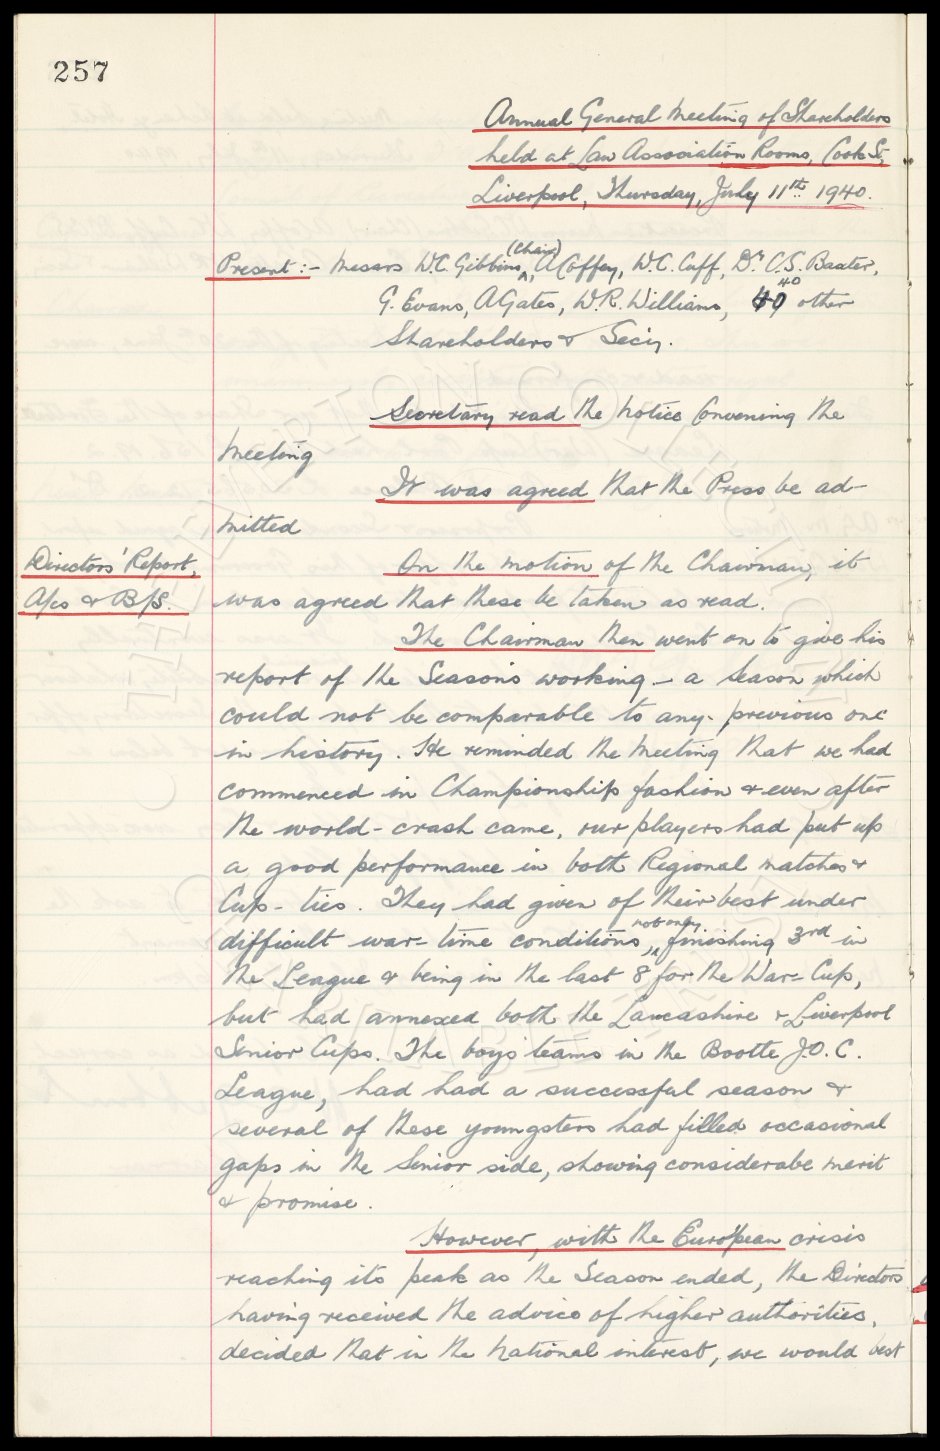 257
Annual General Meeting of Shareholders
held at Law Association Rooms, Cook St,
Liverpool, Thursday, July 11th 1940.
Present:- Messrs W.C. Gibbins (Chair), A Coffey, W.C. Cuff, Dr C.S. Baxter,
G. Evans, A Gates, W.R. Williams, 40 other
Shareholders & Secy.
Secretary read the notice Convening the
meeting
It was agreed that the Press be ad-
mitted
Directors' Report,
A/cs & B/S.
On the motion of the Chairman, it
was agreed that these be taken as read.
The Chairman then went on to give his
report of the Season's working – a Season which
could not be comparable to any previous one
in history. He reminded the meeting that we had
commenced in Championship fashion & even after
the world-crash came, our players had put up
a good performance in both Regional matches &
Cup-ties. They had given of their best under
difficult war-time conditions, not only finishing 3rd in
the League & being in the last 8 for the War-Cup,
but had annexed both the Lancashire & Liverpool
Senior Cups. The boys' teams in the Bootle J.O.C.
League, had had a successful season &
several of these youngsters had filled occasional
gaps in the Senior side, showing considerabe merit
& promise.
However, with the European crisis
reaching its peak as the Season ended, the Directors
having received the advice of higher authorities,
decided that in the national interest, we would best